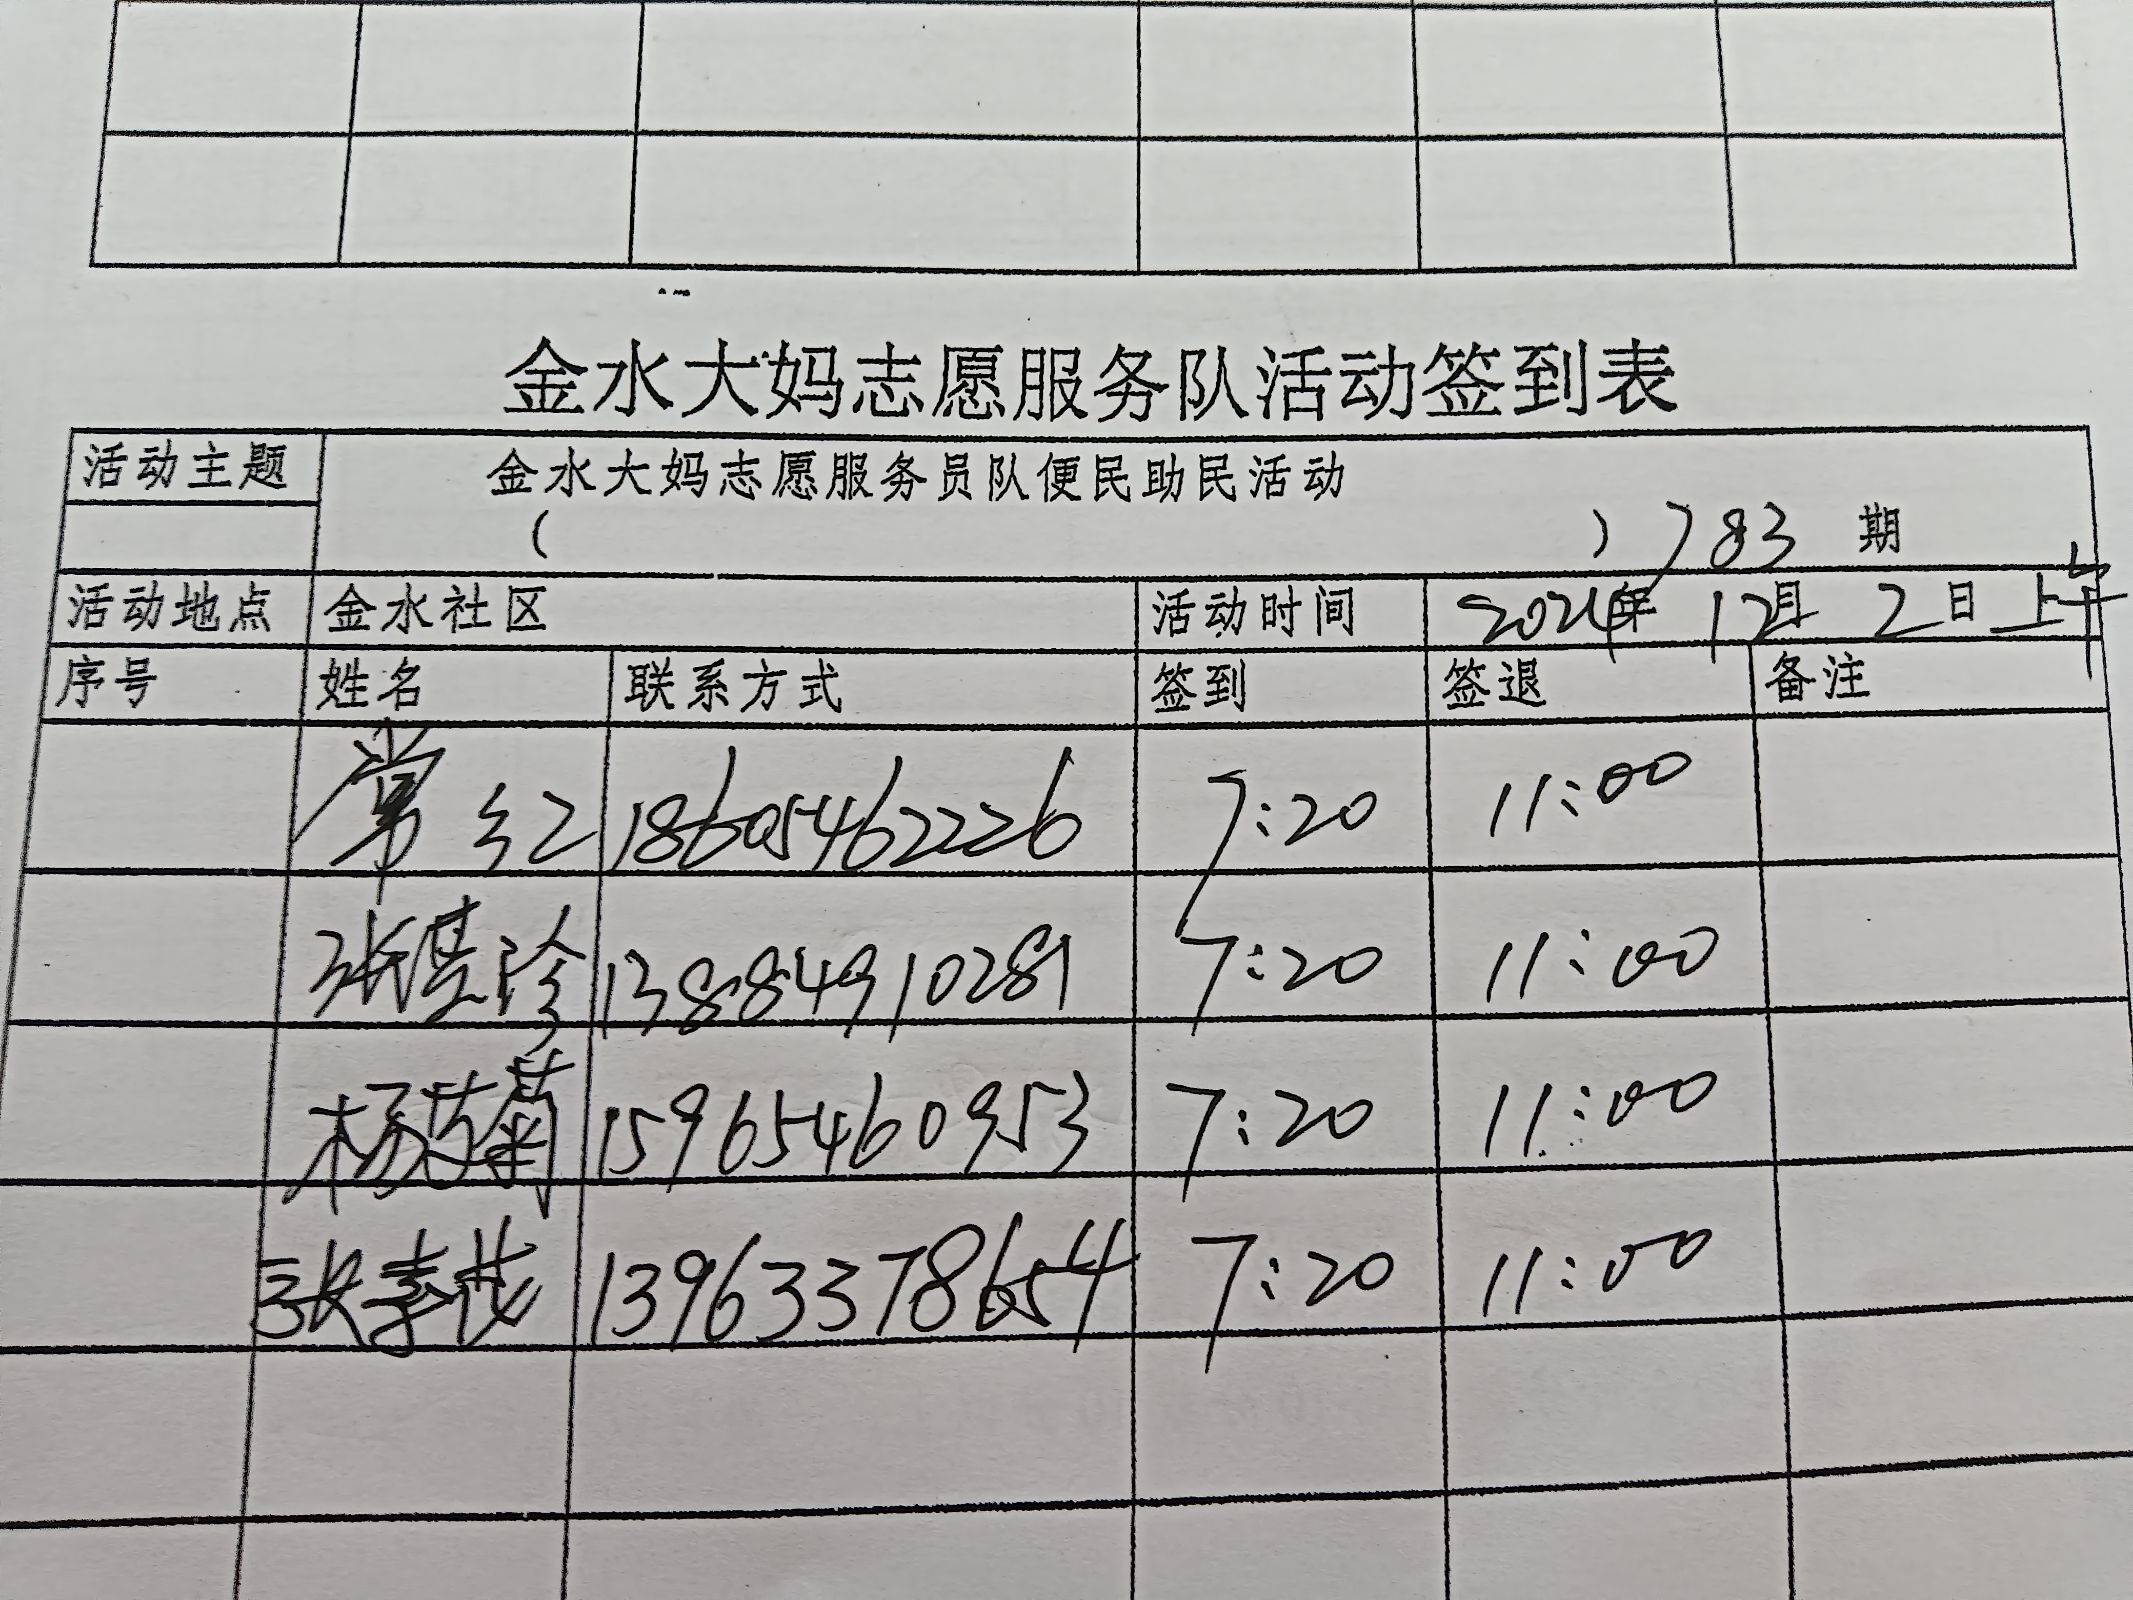 金水大妈志愿服务队活动签到表
活动主题 金水大妈志愿服务员队便民助民活动
( ) 783 期
活动地点 金水社区 活动时间 2024年 12月 2日上午
序号 姓名 联系方式 签到 签退 备注
常红 18605462226 7:20 11:00
张显珍 13884910281 7:20 11:00
杨菊 15965460953 7:20 11:00
张 13963378654 7:20 11:00